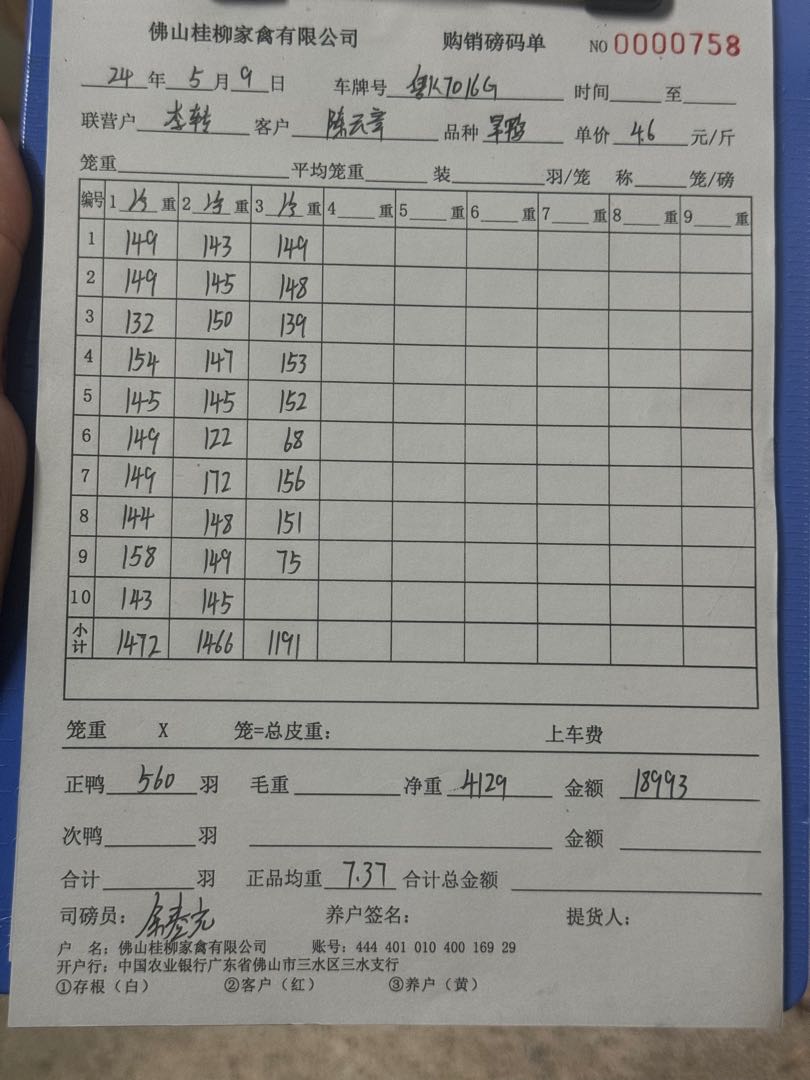 佛山桂柳家禽有限公司 购销磅码单 NO 0000758
24 年 5 月 9 日 车牌号 粤K7016G 时间 至
联营户 李转 客户 陈云章 品种 旱鸭 单价 4.6 元/斤
笼重 平均笼重 装 羽/笼 称 笼/磅
编号 1 净 重 2 净 重 3 净 重 4 重 5 重 6 重 7 重 8 重 9 重
1 149 143 149
2 149 145 148
3 132 150 139
4 154 147 153
5 145 145 152
6 149 122 68
7 149 172 156
8 144 148 151
9 158 149 75
10 143 145
小计 1472 1466 1191
笼重 X 笼=总皮重： 上车费
正鸭 560 羽 毛重 净重 4129 金额 18993
次鸭 羽 金额
合计 羽 正品均重 7.37 合计总金额
司磅员： 养户签名： 提货人：
户 名：佛山桂柳家禽有限公司 账号：444 401 010 400 169 29
开户行：中国农业银行广东省佛山市三水区三水支行
①存根（白） ②客户（红） ③养户（黄）